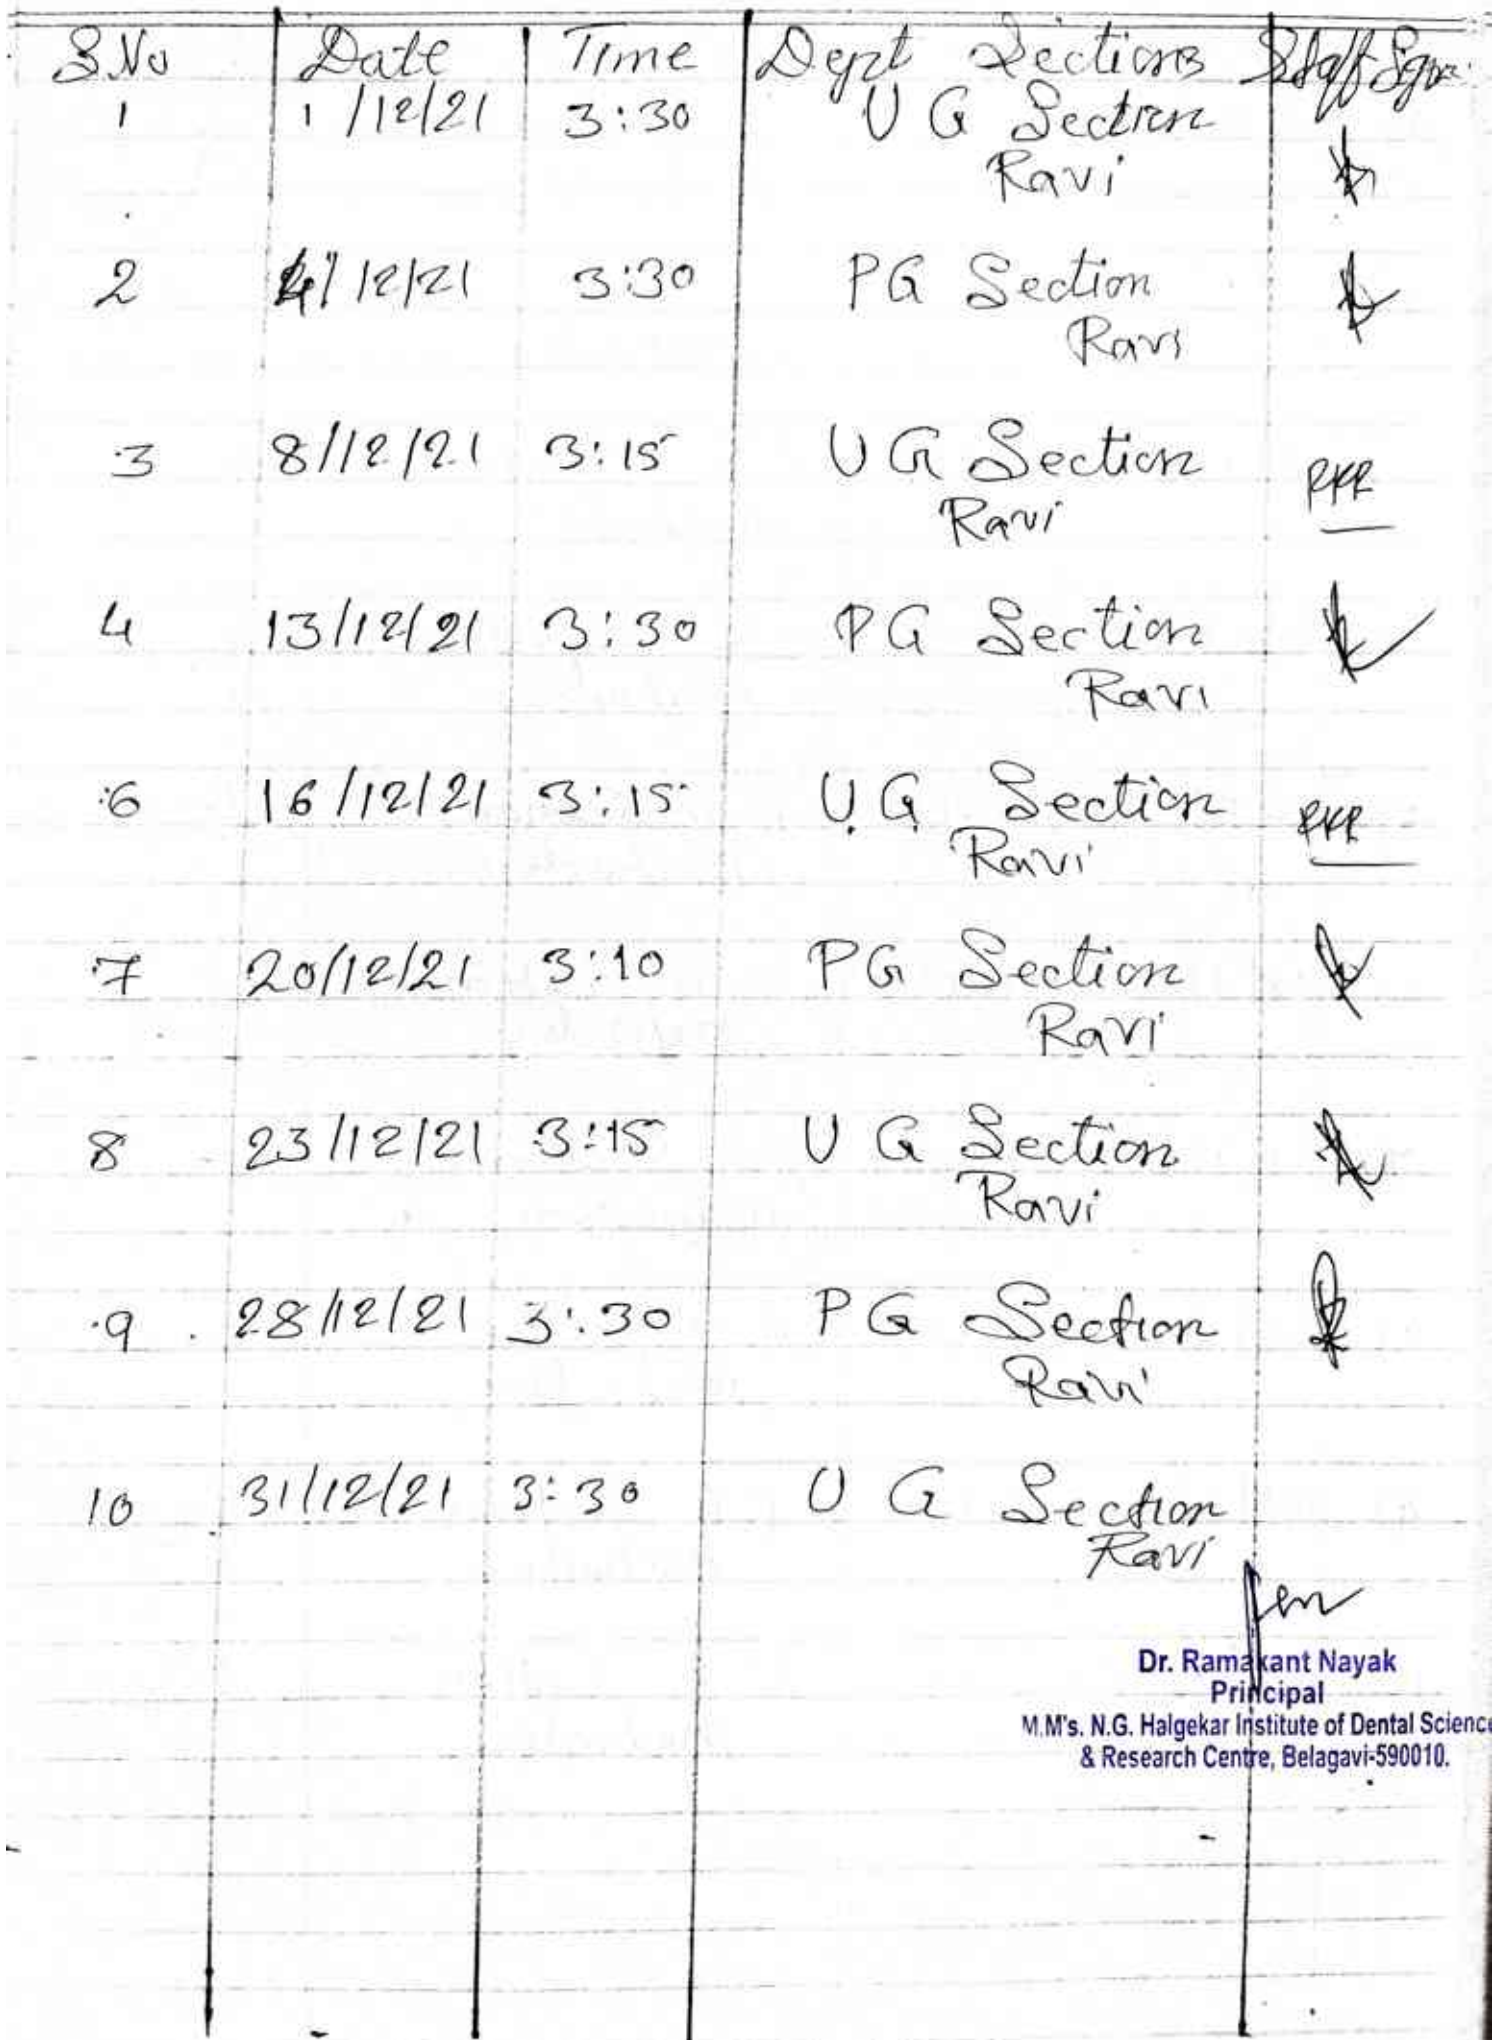 S.No Date Time Dept Sections Staff Sgn
1 1/12/21 3:30 U G Section
Ravi
2 4/12/21 3:30 PG Section
Ravi
3 8/12/21 3:15 U G Section
Ravi RKR
4 13/12/21 3:30 PG Section
Ravi
6 16/12/21 3:15 U.G. Section
Ravi RKR
7 20/12/21 3:10 PG Section
Ravi
8 23/12/21 3:15 U G Section
Ravi
9 28/12/21 3:30 PG Section
Ravi
10 31/12/21 3:30 U G Section
Ravi
Dr. Ramakant Nayak
Principal
M.M's. N.G. Halgekar Institute of Dental Science
& Research Centre, Belagavi-590010.